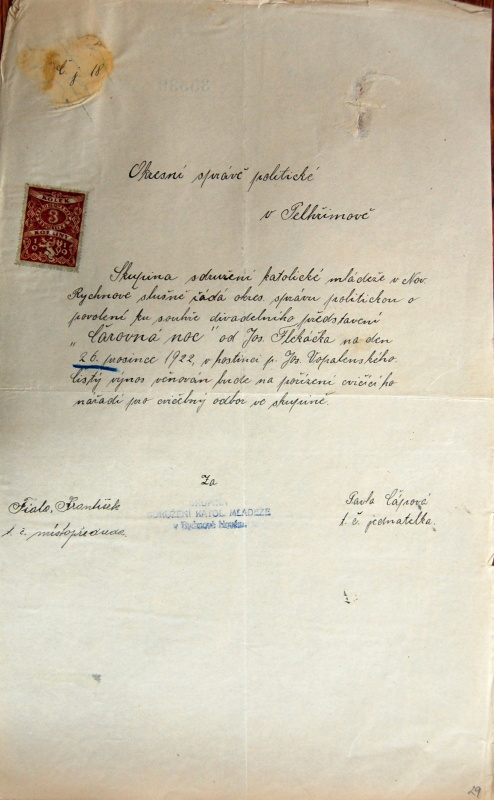 č. j. 18
KOLEK
3
1919
Okresní správě politické
v Pelhřimově
Skupina sdružení katolické mládeže v Nov.
Rychnově slušně žádá okres. správu politickou o
povolení ku souhře divadelního představení
"Čarovná noc" od Jos. Flekáčka na den
26. prosince 1922, v hostinci p. Jos. Vopalenského.
Čistý výnos věnován bude na pořízení cvičícího
nářadí pro cvičebný odbor ve skupině.
Za
Fiala František
t. č. místopředseda
SKUPINA
SDRUŽENÍ KATOL. MLÁDEŽE
v Rychnově Novém.
Pavla Čápová
t. č. jednatelka.
29